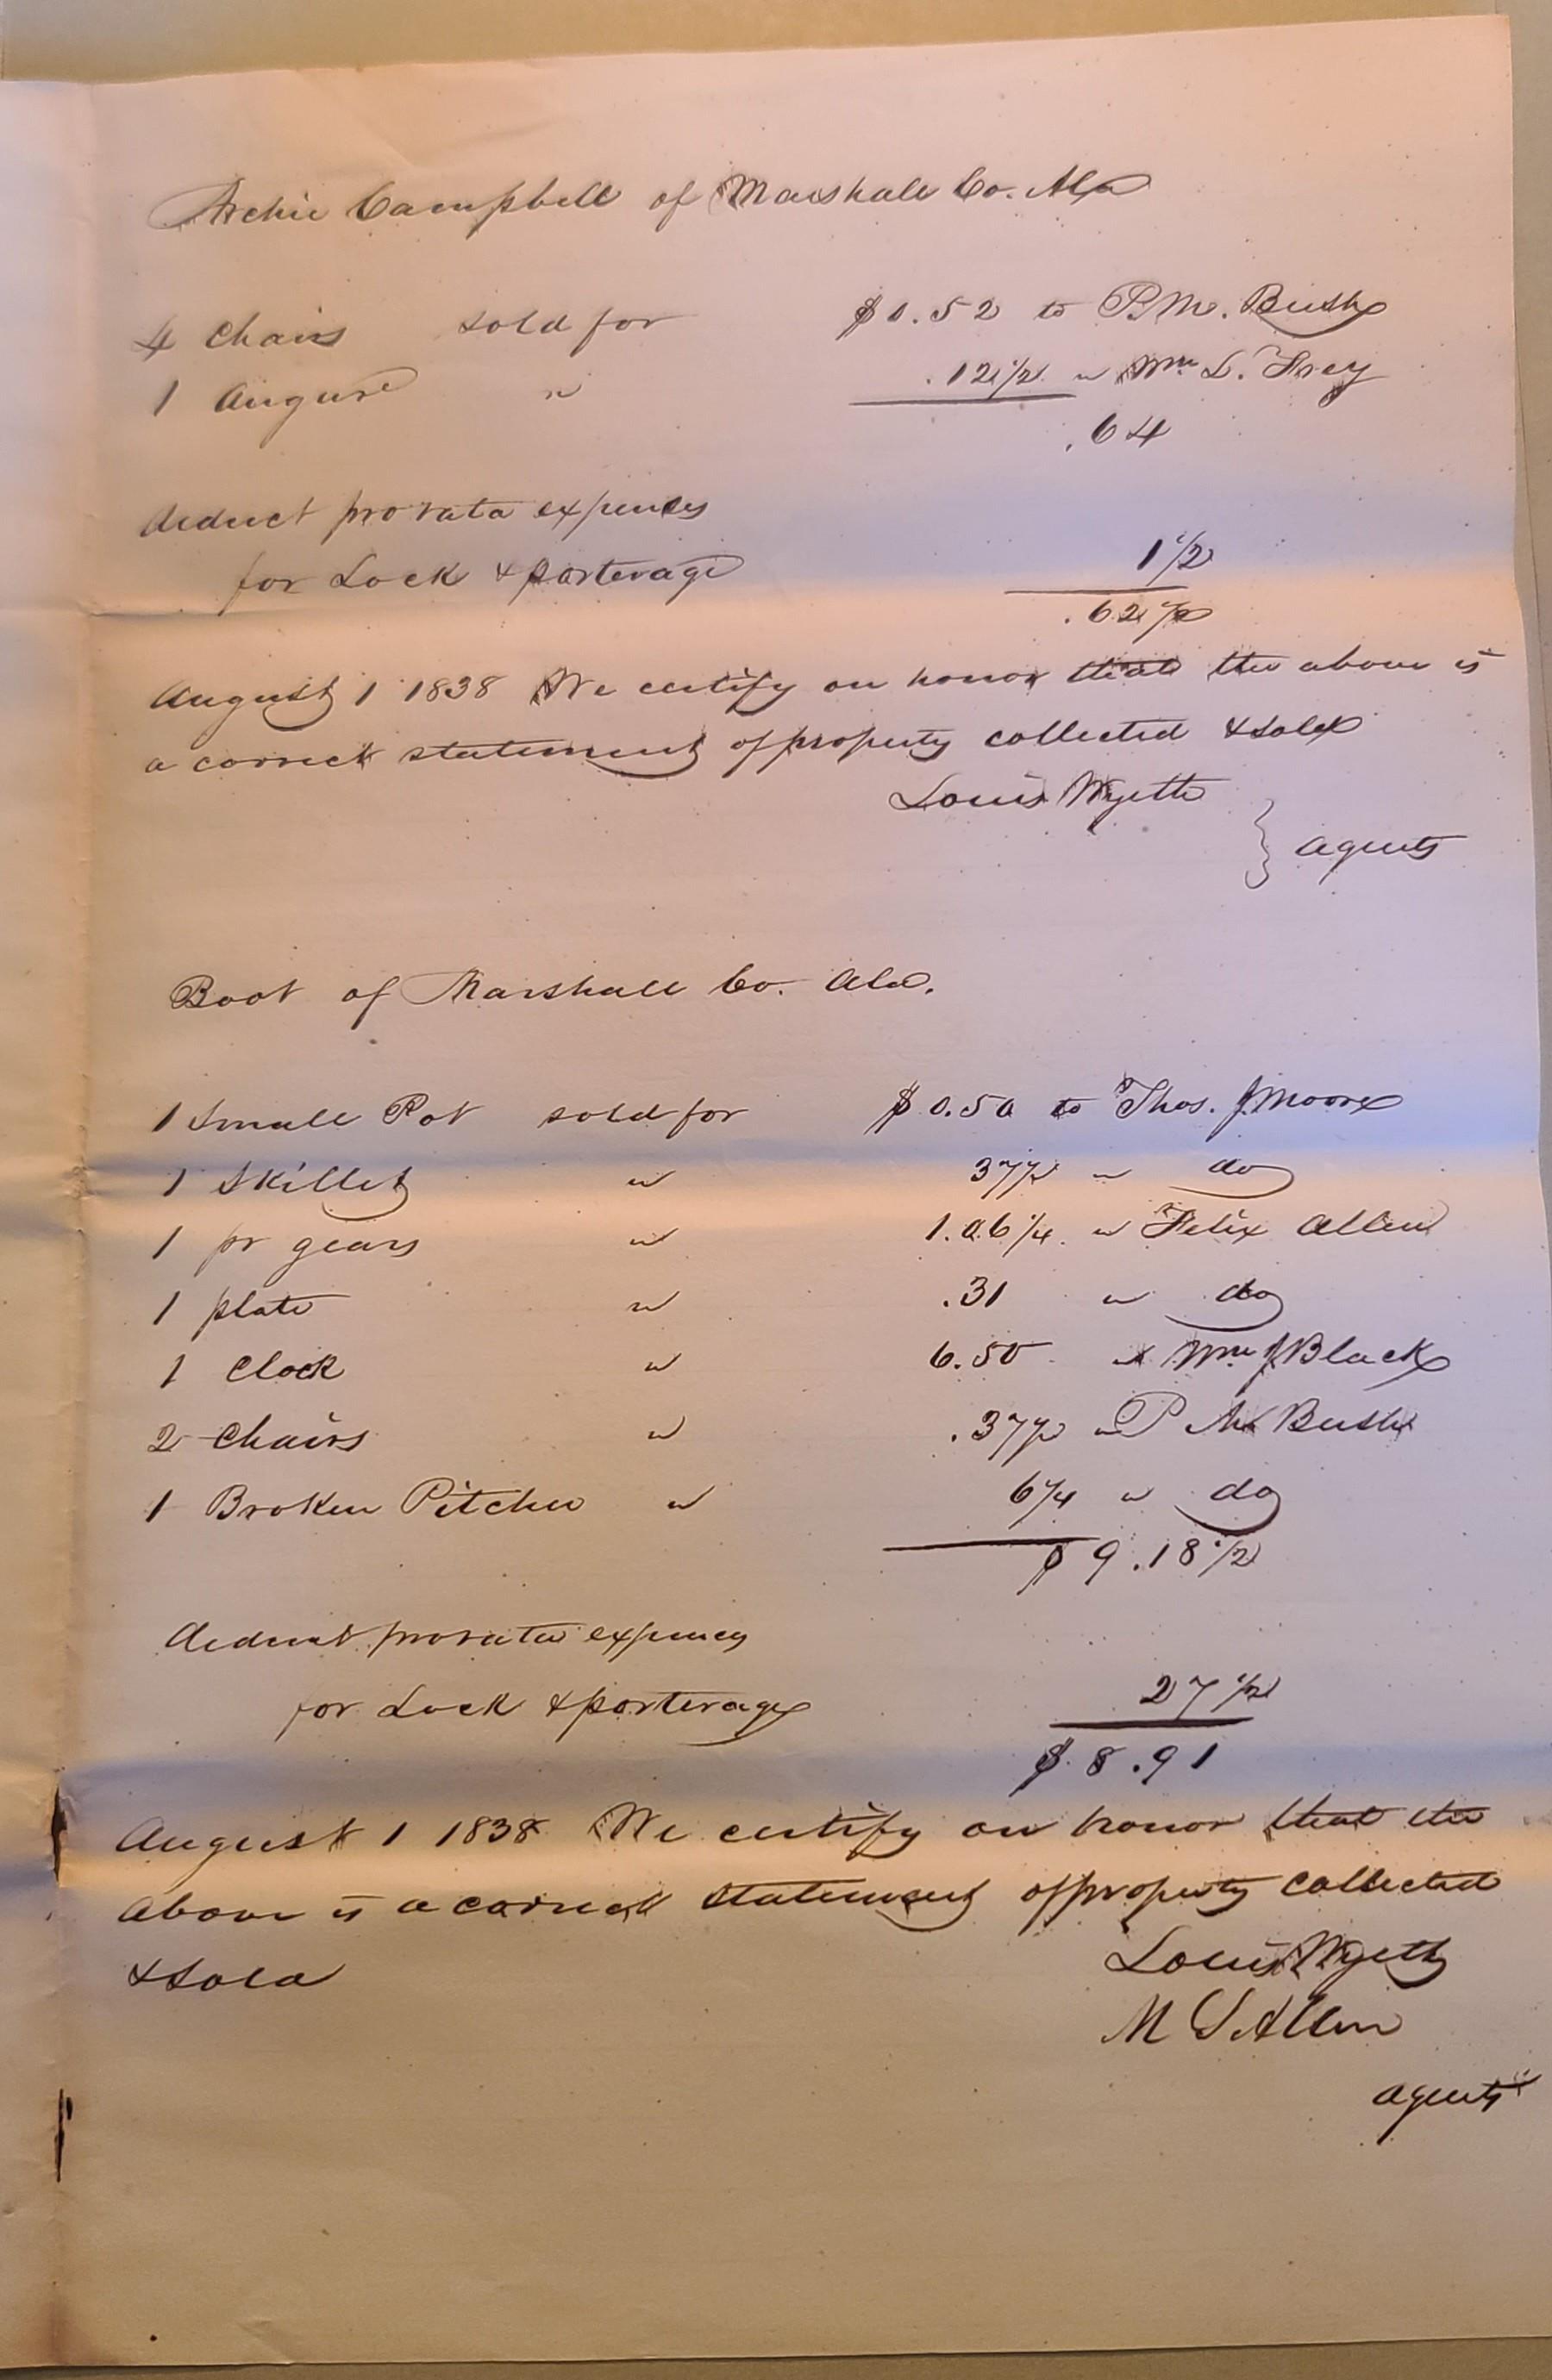 Archie Campbell of Marshall Co. Ala
4 Chairs sold for $0.52 to P.M. Bush
1 Augure " .12 1/2 " Wm L. Frey
.64
deduct pro rata expences
for Lock & porterage 1 1/2
.62 1/2
August 1 1838 We certify on honor that the above is
a correct statement of property collected & sold
Louis Wyeth
} agents
Boot of Marshall Co. Ala.
1 Small Pot sold for $0.50 to Thos. J Moore
1 Skillet " 37 1/2 " do
1 pr gears " 1.06 1/4 " Felix Allen
1 plate " .31 " do
1 Clock " 6.50 " Wm J Black
2 Chairs " .37 1/2 " P M Bush
1 Broken Pitcher " 6 1/4 " do
$9.18 1/2
deduct pro rata expences
for Lock & porterage 27 1/2
$8.91
August 1 1838 We certify on honor that the
above is a correct statement of property collected
& sold
Louis Wyeth
M S Allen
agents